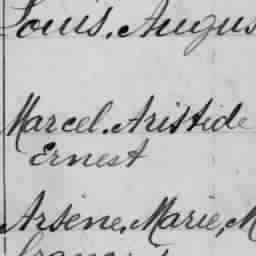 Louis, Augus
Marcel, Aristide
Ernest
Arsène, Marie, M